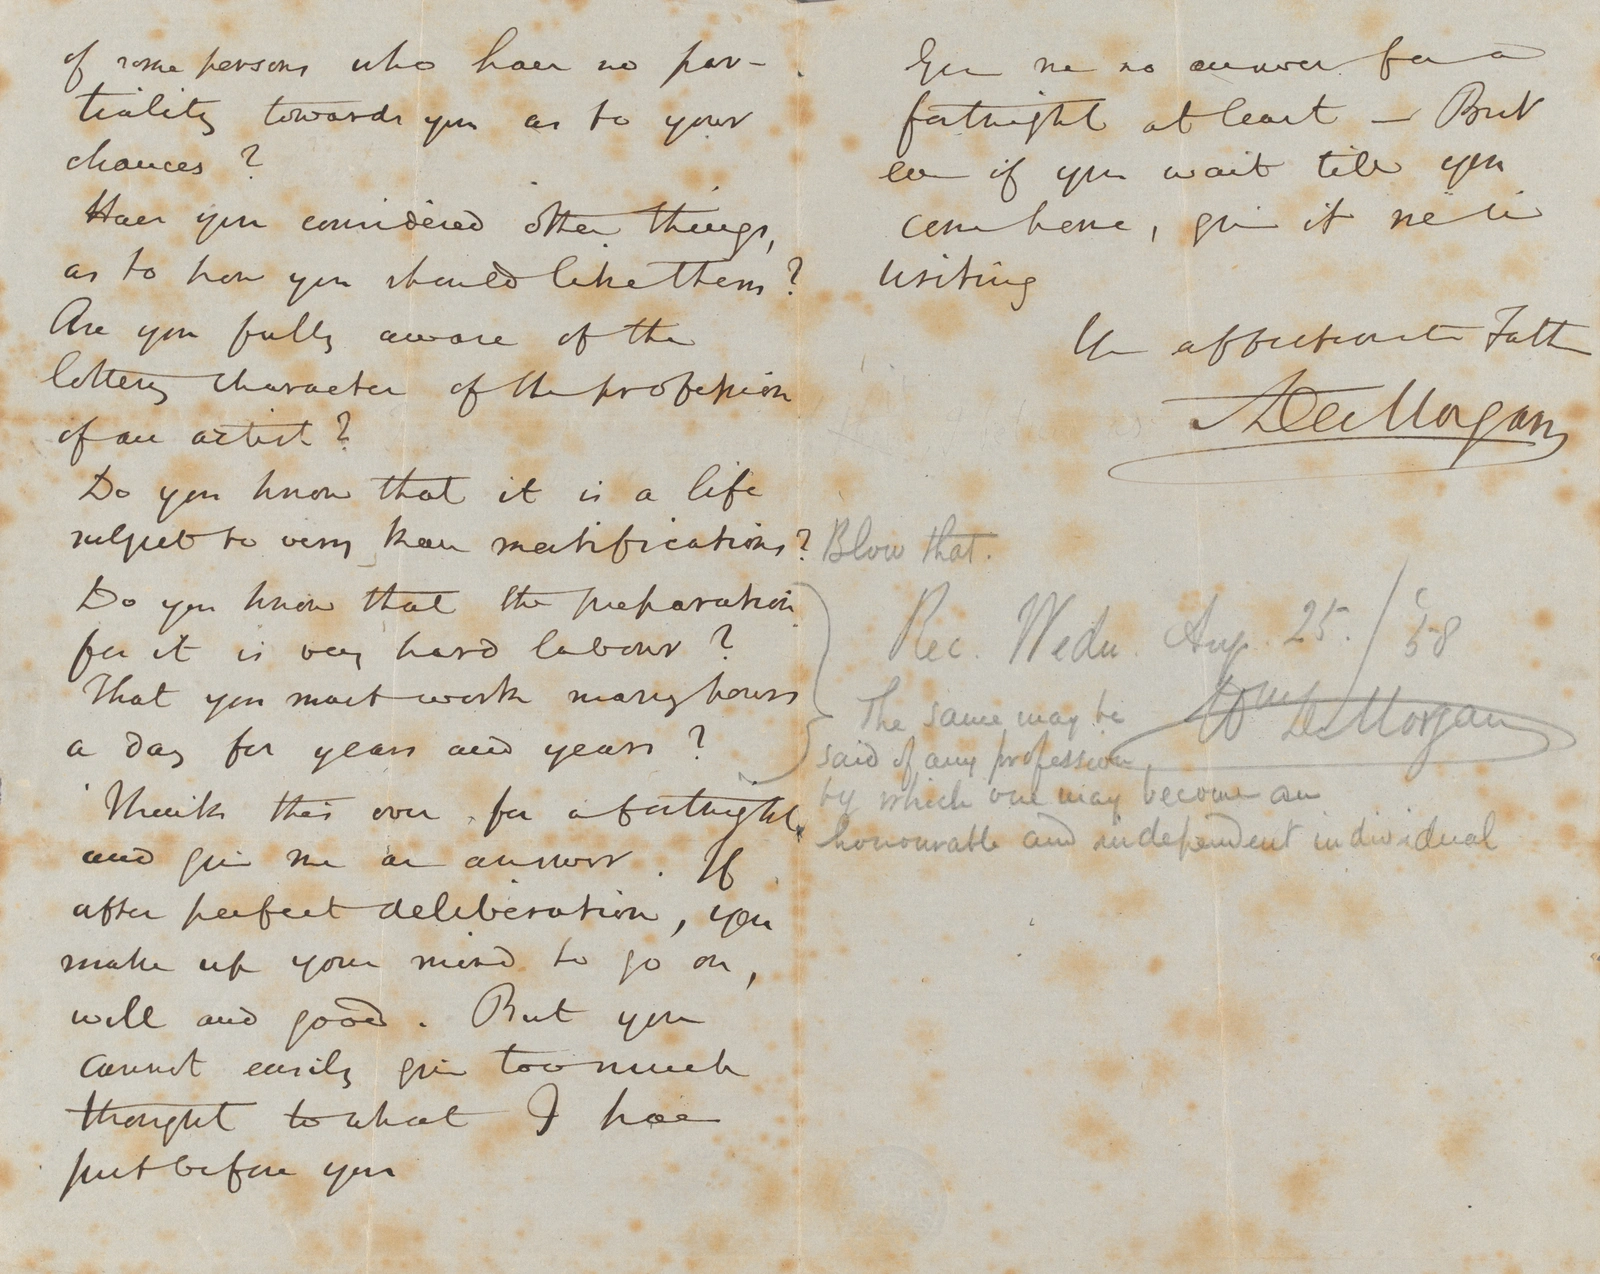 of some persons who have no par-
tiality towards you as to your
chances?
Have you considered other things,
as to how you should like them?
Are you fully aware of the
lottery character of the profession
of an artist?
Do you know that it is a life
subject to very keen mortifications?
Do you know that the preparation
for it is very hard labour?
That you must work many hours
a day for years and years?
Think this over for a fortnight
and give me an answer. If
after perfect deliberation, you
make up your mind to go on,
well and good. But you
cannot easily give too much
thought to what I have
put before you
Give me no answer for a
fortnight at least — But
even if you wait till you
come home, give it me in
writing
Your affectionate Father
ADeMorgan
Blow that.
Rec. Wedn. Aug. 25. / '58
Wm DeMorgan
The same may be
said of any profession
by which one may become an
honourable and independent individual